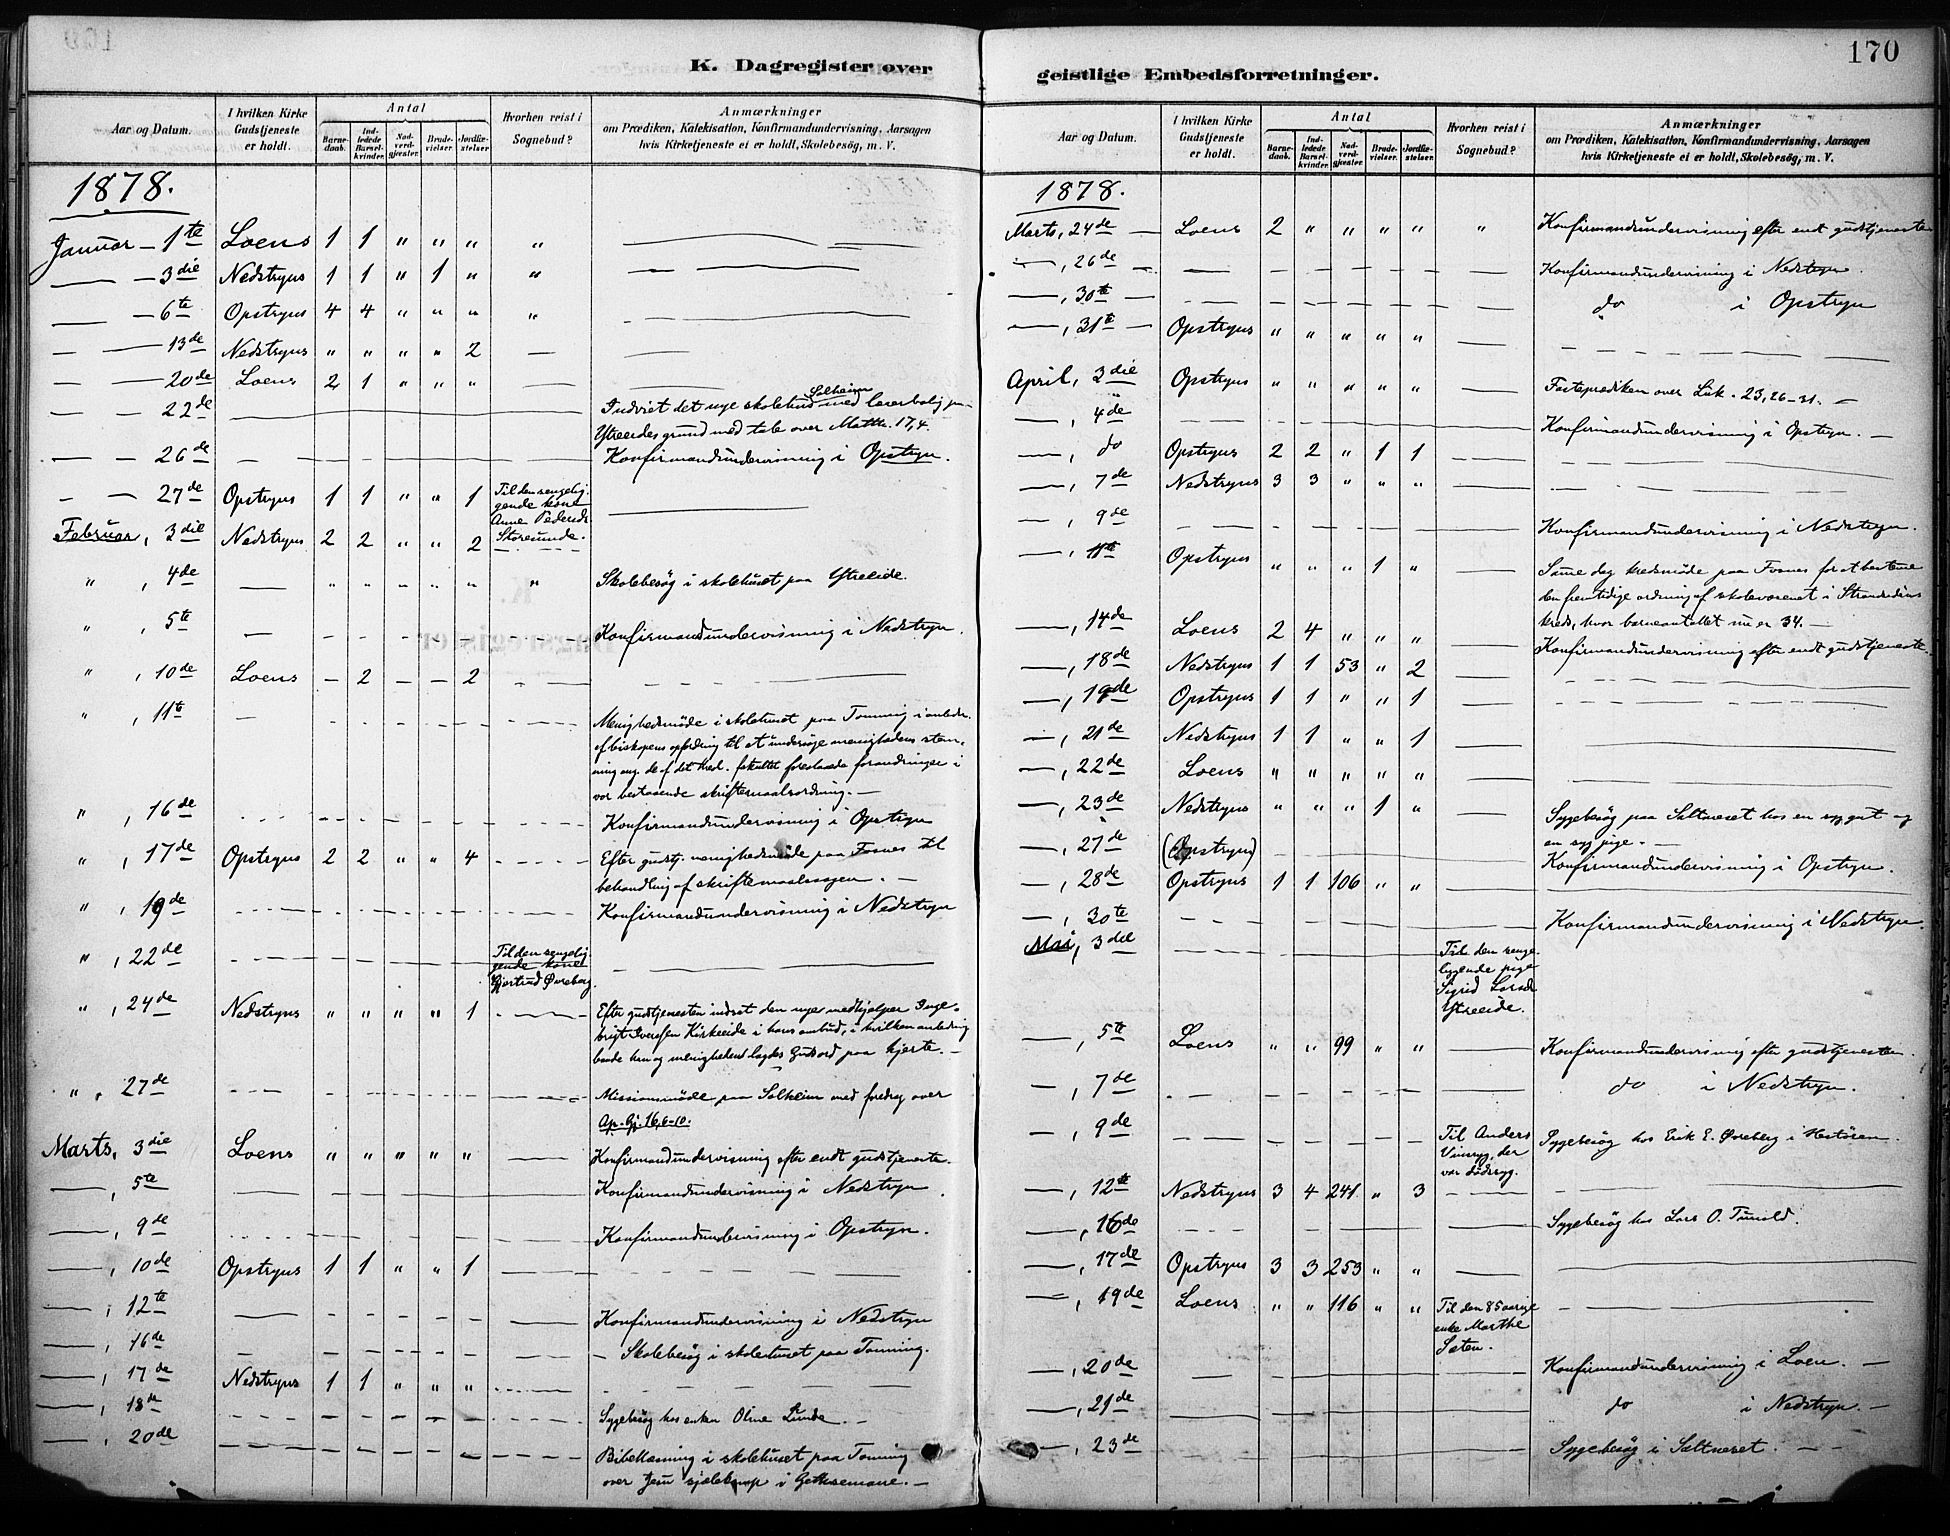 K. Dagregister over
Aar og Datum. | I hvilken Kirke Gudstjeneste er holdt. | Antal | Barnedaab. | Indledede Barselkvinder. | Nadverdgjester. | Brudevielser. | Jordfæstelser. | Hvorhen reist i Sognebud? | Anmærkninger om Prædiken, Katekisation, Konfirmandundervisning, Aarsagen hvis Kirketjeneste ei er holdt, Skolebesøg, m. V.
1878.
Januar – 1te Loens 1 1 " " " " —
— – 3die Nedstryns 1 1 " 1 " " —
— – 6te Opstryns 4 4 " " " " —
— — 13de Nedstryns " " " " 2 — —
— — 20de Loens 2 1 " " " — —
— — 22de — Indviet det nye skolehus Solheim med lærerbolig paa
Ytreeides grund med tale over Matth. 17,4.
— — 26de — Konfirmandundervisning i Opstryn.
— — 27de Opstryns 1 1 " " 1 Til den sengelig-
gende kone
Anne Pedersdr.
Storesunde. —
Februar, 3die Nedstryns 2 2 " " 2 — —
" , 4de — " " " " " " Skolebesøg i skolehuset paa Ytreeide.
" , 5te — Konfirmandundervisning i Nedstryn.
" , 10de Loens – 2 – – 2 — —
" , 11te — Menighedsmøde i skolehuset paa Tonning i anledn.
af biskopens opfordring til at undersøge menighedens stem-
ning ang. de af det theol. fakultet foreslaaede forandringer i
vor bestaaende skriftemaalsordning. –
" , 16de — Konfirmandundervisning i Opstryn
" , 17de Opstryns 2 2 " " 4 — Efter gudstj. menighedsmøde paa Fosnes til
behandling af skriftemaalssagen. –
" , 19de — Konfirmandundervisning i Nedstryn
" , 22de — Til den sengelig-
gende kone
Gjertrud Øvreberg. —
" , 24de Nedstryns " " " " 1 — Efter gudstjenesten indsat den nye medhjælper Inge-
brigt Iversen Kirkeeide i hans ombud, i hvilken anledning
baade han og menigheden lagdes Guds ord paa hjerte. –
" , 27de — Missionsmøde paa Solheim med foredrag over
Ap. Gj. 16,6-10.
Marts, 3die Loens " " " " " — Konfirmandundervisning efter endt gudstjeneste.
—, 5te — Konfirmandundervisning i Nedstryn.
—, 9de — Konfirmandundervisning i Opstryn.
—, 10de Opstryns 1 1 " " 1 — —
—, 12te — Konfirmandundervisning i Nedstryn
—, 16de — Skolebesøg i skolehuset paa Tonning.
—, 17de Nedstryns 1 1 " " " — —
—, 18de — Sygebesøg hos enken Oline Lunde. –
—, 20de — Bibellæsning i skolehuset paa Tonning
over Jesu sjælekamp i Gethsemane. –
170
geistlige Embedsforretninger.
Aar og Datum. | I hvilken Kirke Gudstjeneste er holdt. | Antal | Barnedaab. | Indledede Barselkvinder. | Nadverdgjester. | Brudevielser. | Jordfæstelser. | Hvorhen reist i Sognebud? | Anmærkninger om Prædiken, Katekisation, Konfirmandundervisning, Aarsagen hvis Kirketjeneste ei er holdt, Skolebesøg, m. V.
1878.
Marts, 24de — Loens 2 " " " " " Konfirmandundervisning efter endt gudstjeneste
—, 26de — Konfirmandundervisning i Nedstryn.
—, 30te — do i Opstryn
—, 31te — Opstryns " " " " " — —
April, 3die Opstryns " " " " " — Fasteprædiken over Luk. 23,26-31. –
—, 4de — Konfirmandundervisning i Opstryn. –
—, do Opstryns 2 2 " 1 1 — —
—, 7de Nedstryns 3 3 " " " — —
—, 9de — Konfirmandundervisning i Nedstryn.
—, 11te Opstryns " " " 1 " Same dag kredsmøde paa Fosnes for at bestemme
den fremtidige ordning af skolevæsenet i Strandsidens
kreds, hvor barneantallet nu er 34. –
—, 14de Loens 2 4 " " " Konfirmandundervisning efter endt gudstjeneste.
—, 18de Nedstryns 1 1 53 " 2 — —
—, 19de Opstryns 1 1 " " 1 — —
—, 21de Nedstryns 1 1 " " 1 — —
—, 22de Loens " " " " " — —
—, 23de Nedstryns " " " 1 " Sygebesøg paa Saltneset hos en syg gut og
en syg pige. –
—, 27de (Opstryn) — Konfirmandundervisning i Opstryn.
—, 28de Opstryns 1 1 106 " " — —
—, 30te — Konfirmandundervisning i Nedstryn.
Mai, 3die — Til den senge-
liggende pige
Sigrid Larsdr.
Ytreeide.
—, 5te Loens " " 99 " " — Konfirmandundervisning efter gudstjenesten.
—, 7de — do i Nedstryn.
—, 9de — Til Anders
Vinsryg, der
var dødssyg. Sygebesøg hos Erik E. Øvreberg i Hestøren.
—, 12te Nedstryns 3 4 241 " 3 — —
—, 16de — Sygebesøg hos Lars O. Tunold.
—, 17de Opstryns 3 3 253 " " — —
—, 19de Loens " " 116 " " Til den 85aarige
enke Marthe
Sæten. —
—, 20de Konfirmandundervisning i Loen. –
—, 21de — do i Nedstryn. –
—, 23de — Sygebesøg i Saltneset. –